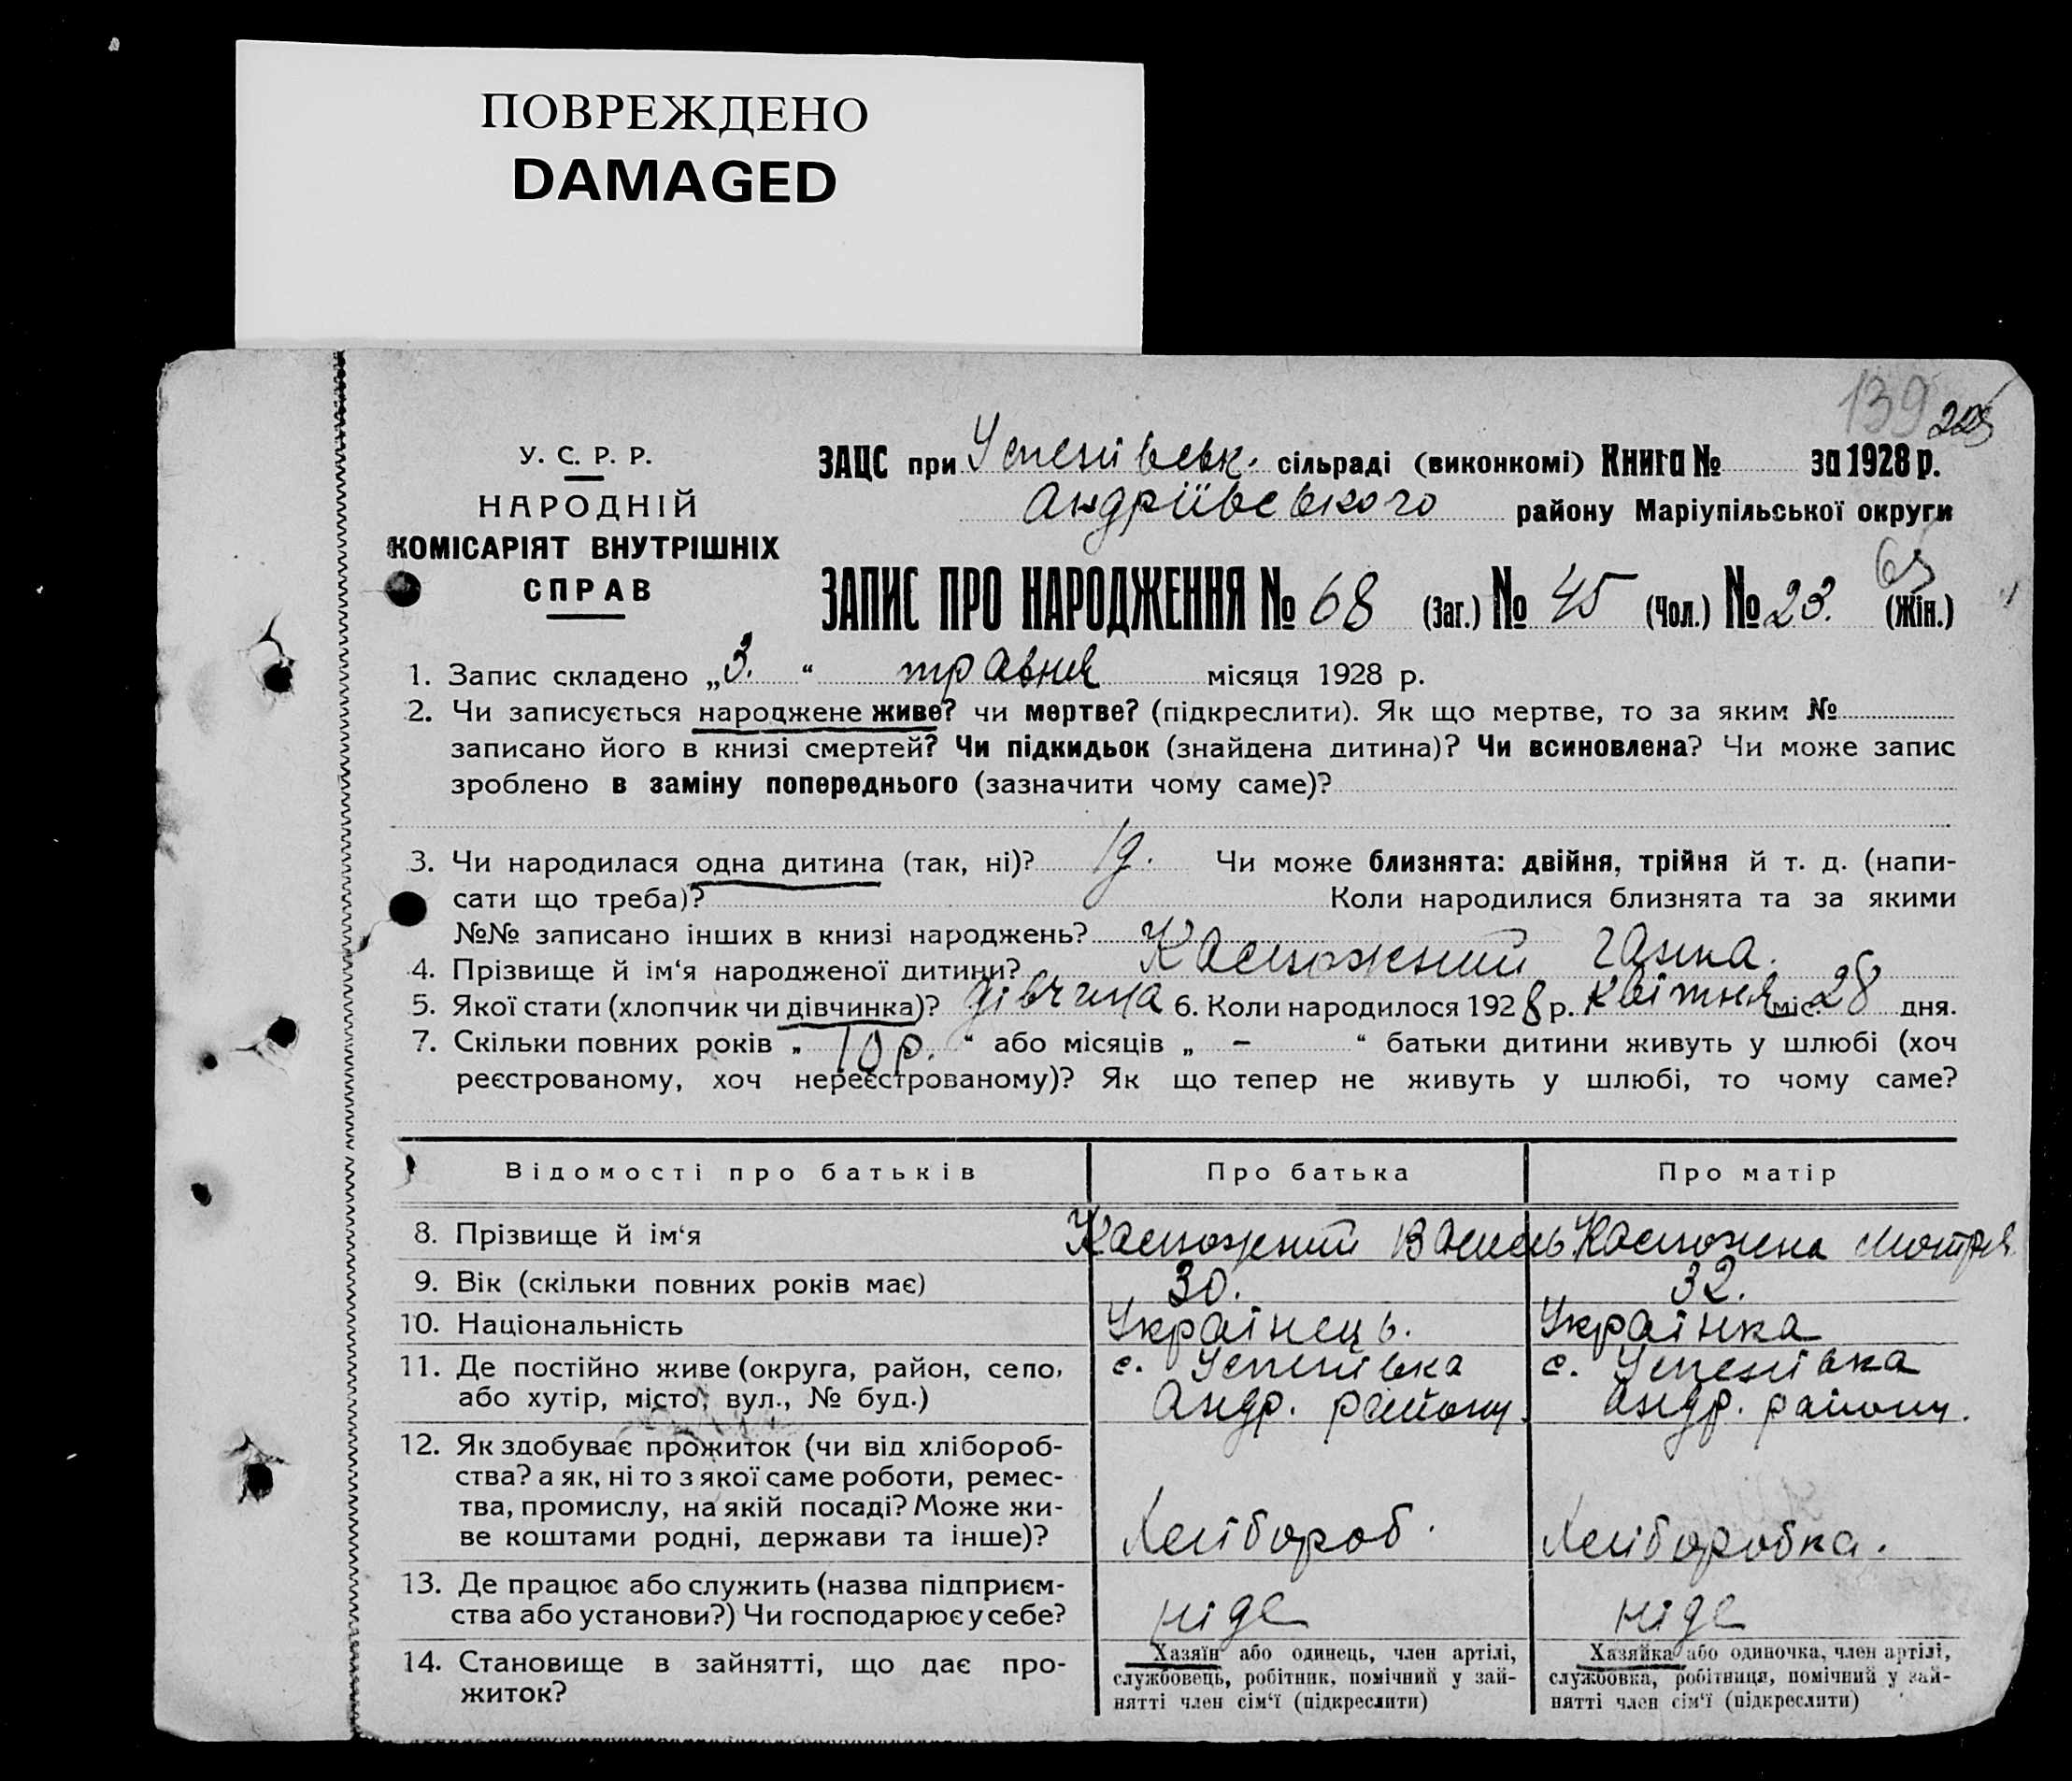 ПОВРЕЖДЕНО
DAMAGED
139
У. С. Р. Р.
НАРОДНІЙ
КОМІСАРІЯТ ВНУТРІШНІХ
СПРАВ
ЗАЦС при Успенівськ. сільраді (виконкомі) Книга № за 1928 р.
Андріївського району Маріупільської округи
65
ЗАПИС ПРО НАРОДЖЕННЯ № 68 (Заг.) № 45 (Чол.) № 23. (Жін.)
1. Запис складено „3.“ травня місяця 1928 р.
2. Чи записується народжене живе? чи мертве? (підкреслити). Як що мертве, то за яким №
записано його в книзі смертей? Чи підкидьок (знайдена дитина)? Чи всиновлена? Чи може запис
зроблено в заміну попереднього (зазначити чому саме)?
3. Чи народилася одна дитина (так, ні)? 1д. Чи може близнята: двійня, трійня й т. д. (напи-
сати що треба)? Коли народилися близнята та за якими
№№ записано інших в книзі народжень?
4. Прізвище й ім‘я народженої дитини? Ганна.
5. Якої стати (хлопчик чи дівчинка)? дівчина 6. Коли народилось 1928 р. квітня міс. 28 дня.
7. Скільки повних років „ 10 р. “ або місяців „ – “ батьки дитини живуть у шлюбі (хоч
реєстрованому, хоч нереєстрованому)? Як що тепер не живуть у шлюбі, то чому саме?
Відомості про батьків Про батька Про матір
8. Прізвище й ім‘я Василь Мотря
9. Вік (скільки повних років має) 30. 32.
10. Національність Українець. Українка
11. Де постійно живе (округа, район, село, с. Успенівка с. Успенівка
або хутір, місто, вул., № буд.) Андр. району. Андр. району.
12. Як здобуває прожиток (чи від хлібороб-
ства? а як, ні то з якої саме роботи, ремес-
тва, промислу, на якій посаді? Може жи-
ве коштами родні, держави та інше)? Хлібороб. Хліборобка.
13. Де працює або служить (назва підприєм-
ства або установи?) Чи господарює у себе? ніде ніде
14. Становище в зайнятті, що дає про-
житок?
Хазяїн або одинець, член артілі,
службовець, робітник, помічний у зай-
нятті член сім‘ї (підкреслити)
Хазяйка або одиночка, член артілі,
службовка, робітниця, помічний у зай-
нятті член сім‘ї (підкреслити)